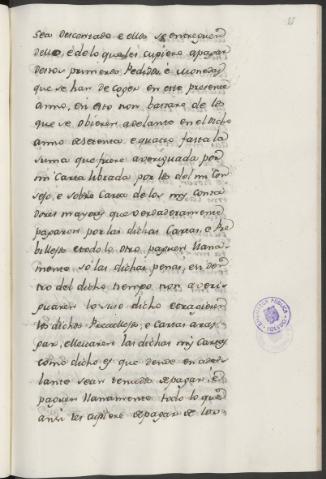 sea descontado e ellos se entreguen
dello, é de lo que les cupiere a pagar
destos primeros Pedidos, é Monedas
que se han de coger en este presente
anno, en esto non bastare de les
que se obieren adelante en el dicho
anno de setenta e quatro fasta la
suma que fuere averiguada por
mi Carta librada por los del mi Con
sejo, e sobre Carta de los mis Conta
dores mayores que verdaderamente
pagaron por las dichas Cartas, e Pre
billejos e todo lo otro paguen llana
mente só las dichas penas, e si den
tro del dicho tiempo non averi
guaren lo suso dicho e traxieren
los dichos Previllejos, e Cartas a ras
gar, e llevaren las dichas mis Cartas
como dicho es que dende en ade
lante sean tenudos de pagar, é
paguen llanamente todo lo que
ansi les cupiere de pagar de los